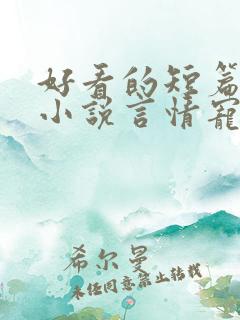 好看的短篇
小说言情宠
希尔曼
未经同意禁止转载